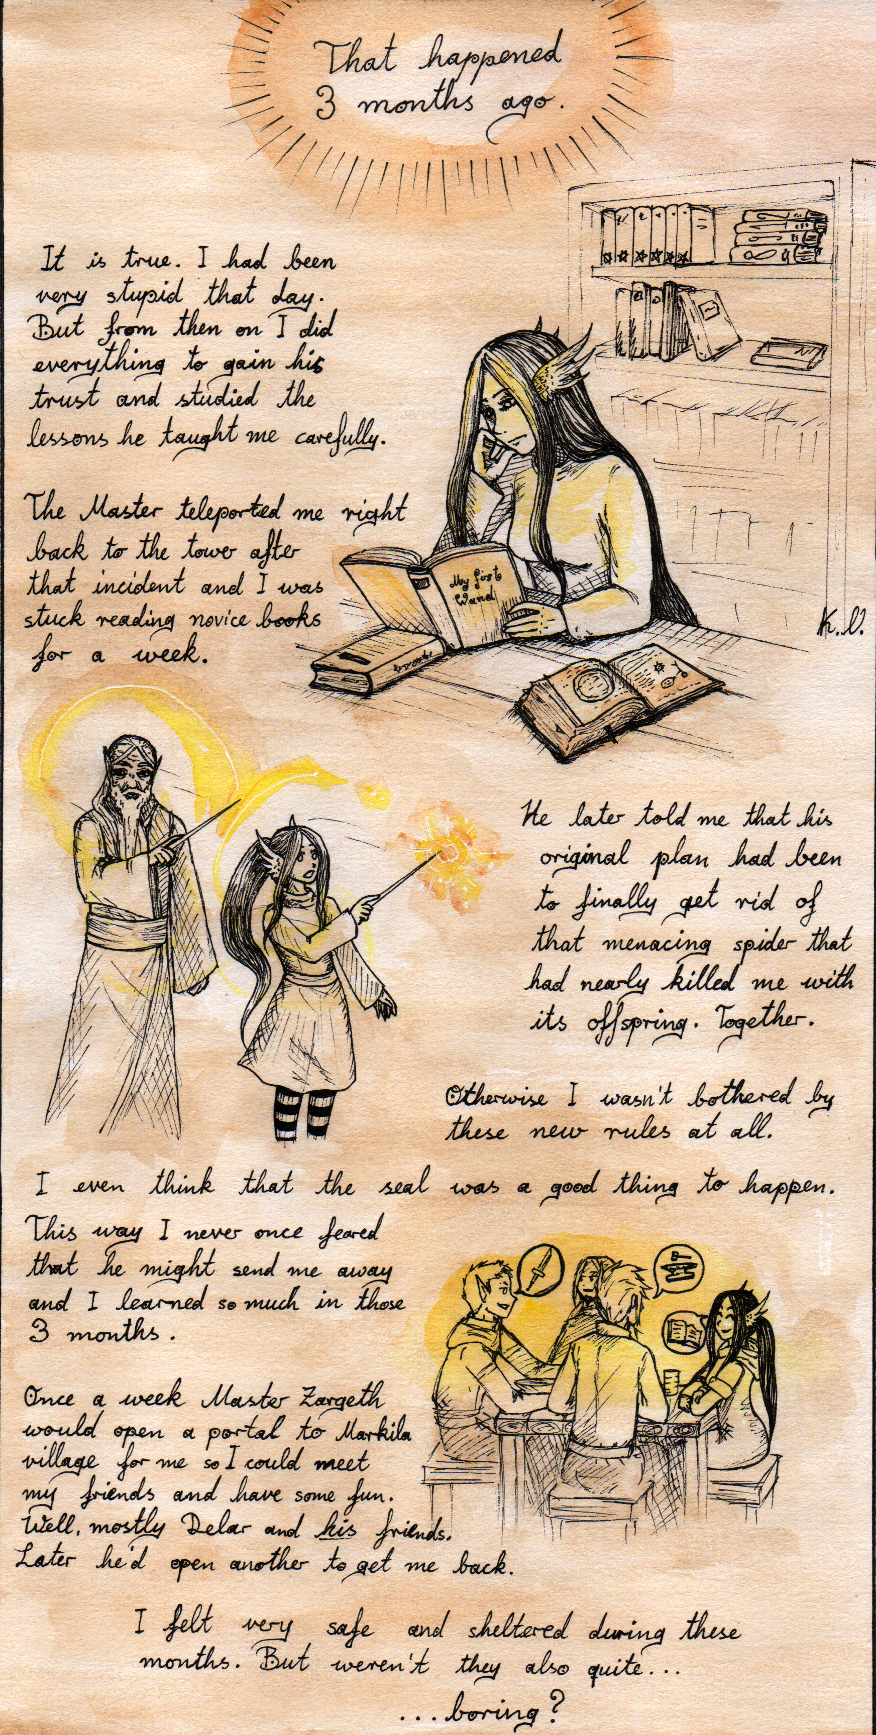 That happened
3 months ago.
It is true. I had been
very stupid that day.
But from then on I did
everything to gain his
trust and studied the
lessons he taught me carefully.
The Master teleported me right
back to the tower after
that incident and I was
stuck reading novice books
for a week.
My first
Wand
K.V.
He later told me that his
original plan had been
to finally get rid of
that menacing spider that
had nearly killed me with
its offspring. Together.
Otherwise I wasn't bothered by
these new rules at all.
I even think that the seal was a good thing to happen.
This way I never once feared
that he might send me away
and I learned so much in those
3 months.
Once a week Master Zargeth
would open a portal to Markila
village for me so I could meet
my friends and have some fun.
Well, mostly Delar and his friends.
Later he'd open another to get me back.
I felt very safe and sheltered during these
months. But weren't they also quite...
...boring?